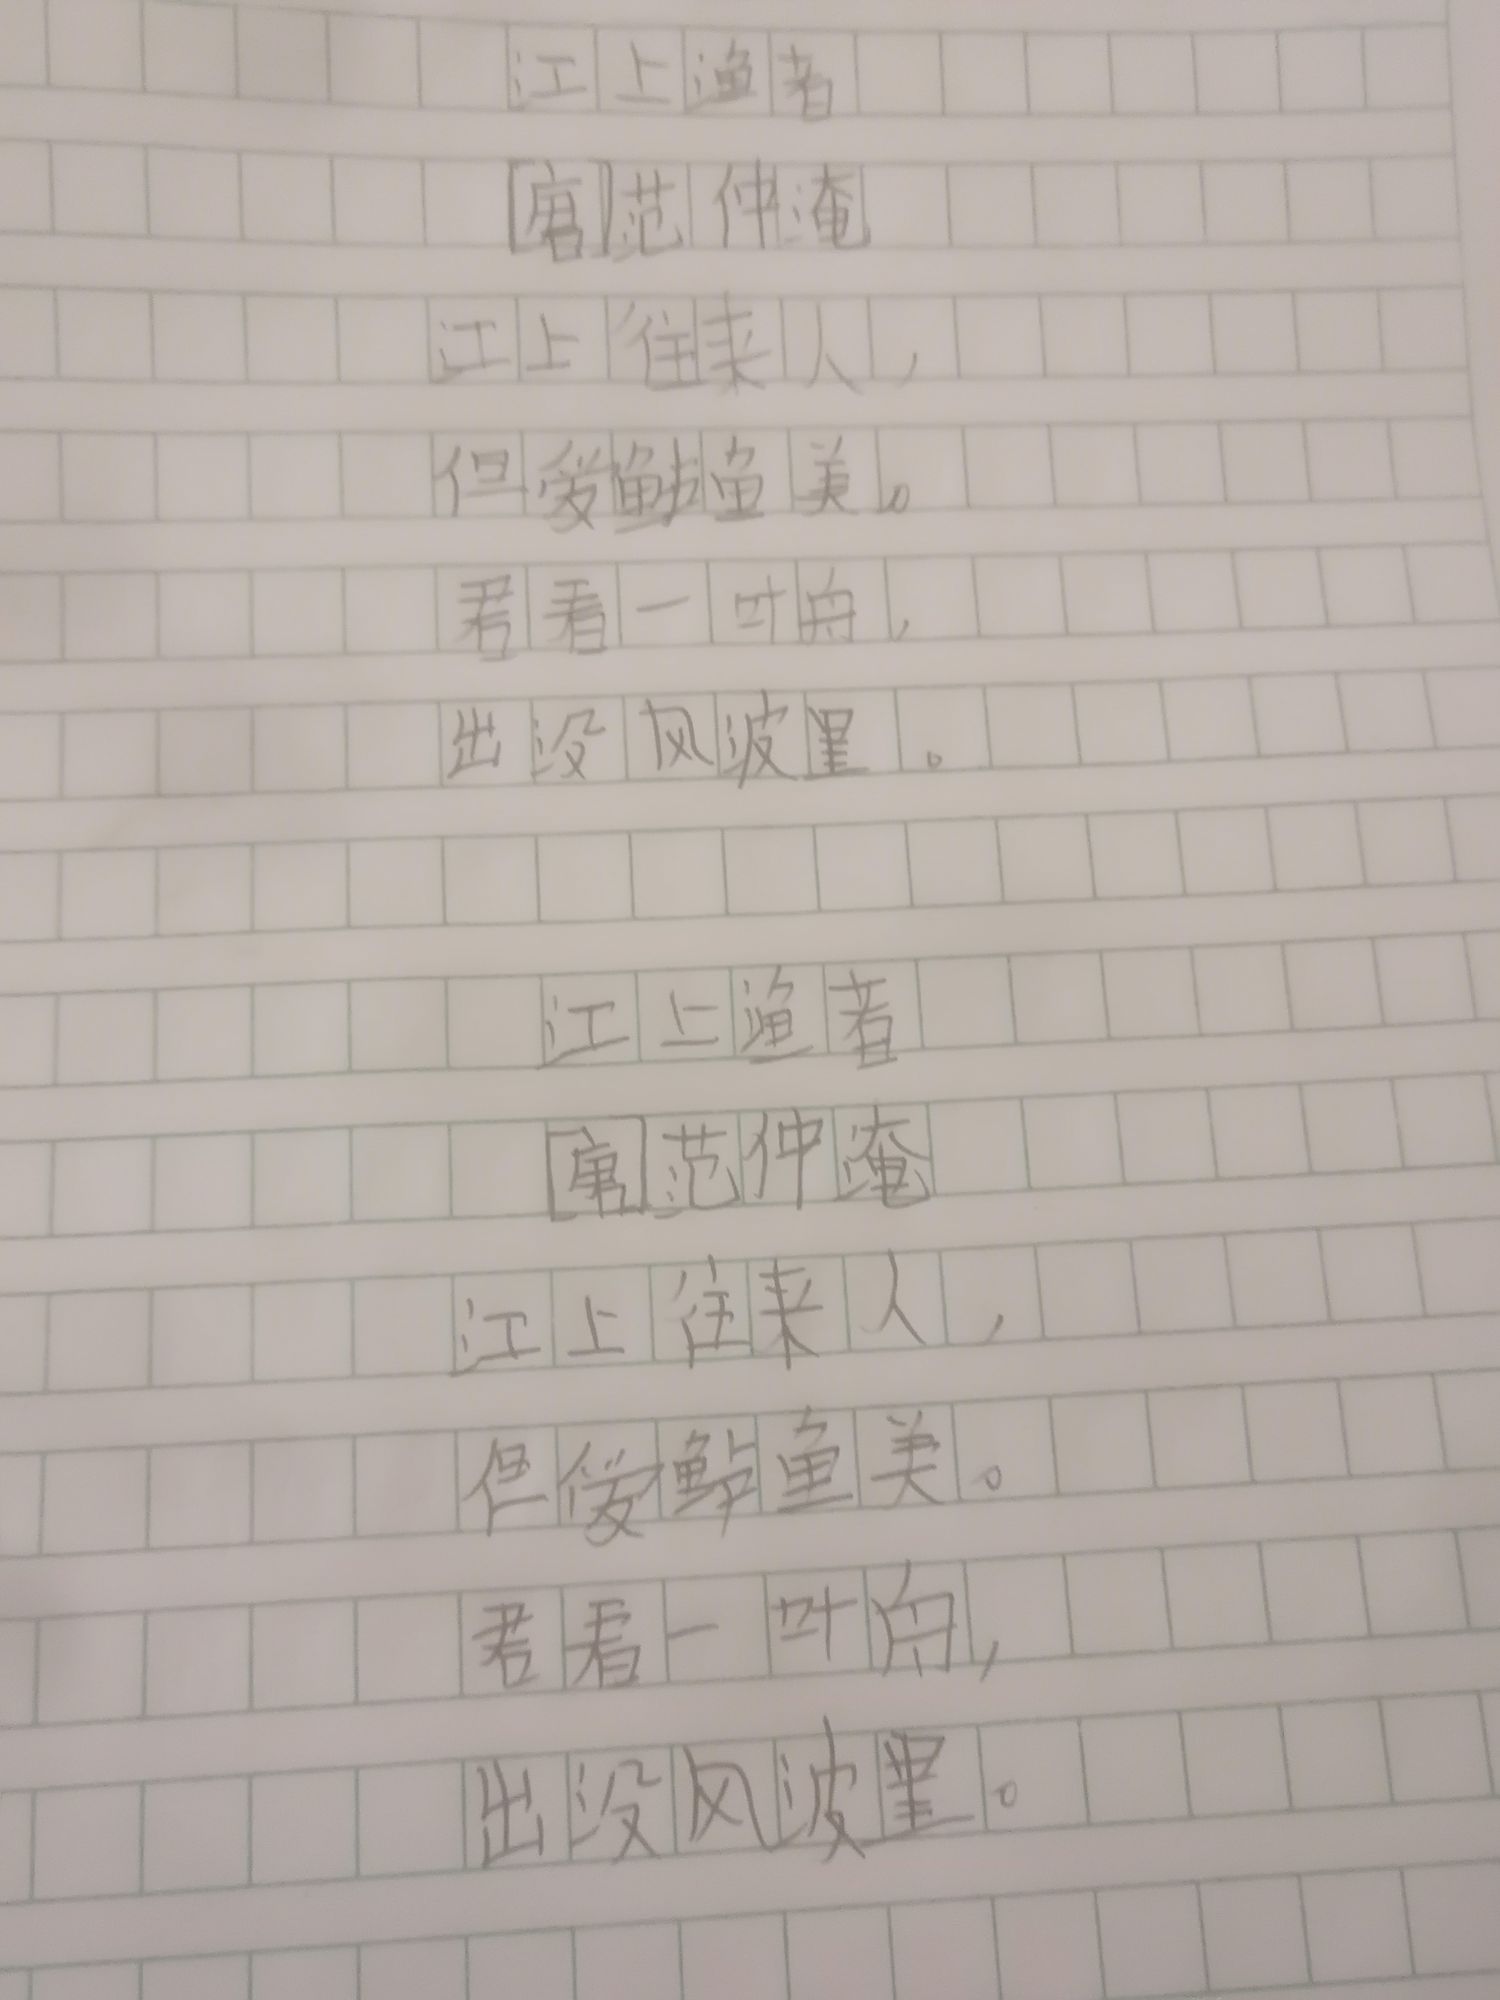 江上渔者
[唐]范仲淹
江上往来人，
但爱鲈鱼美。
君看一叶舟，
出没风波里。
江上渔者
[唐]范仲淹
江上往来人，
但爱鲈鱼美。
君看一叶舟，
出没风波里。